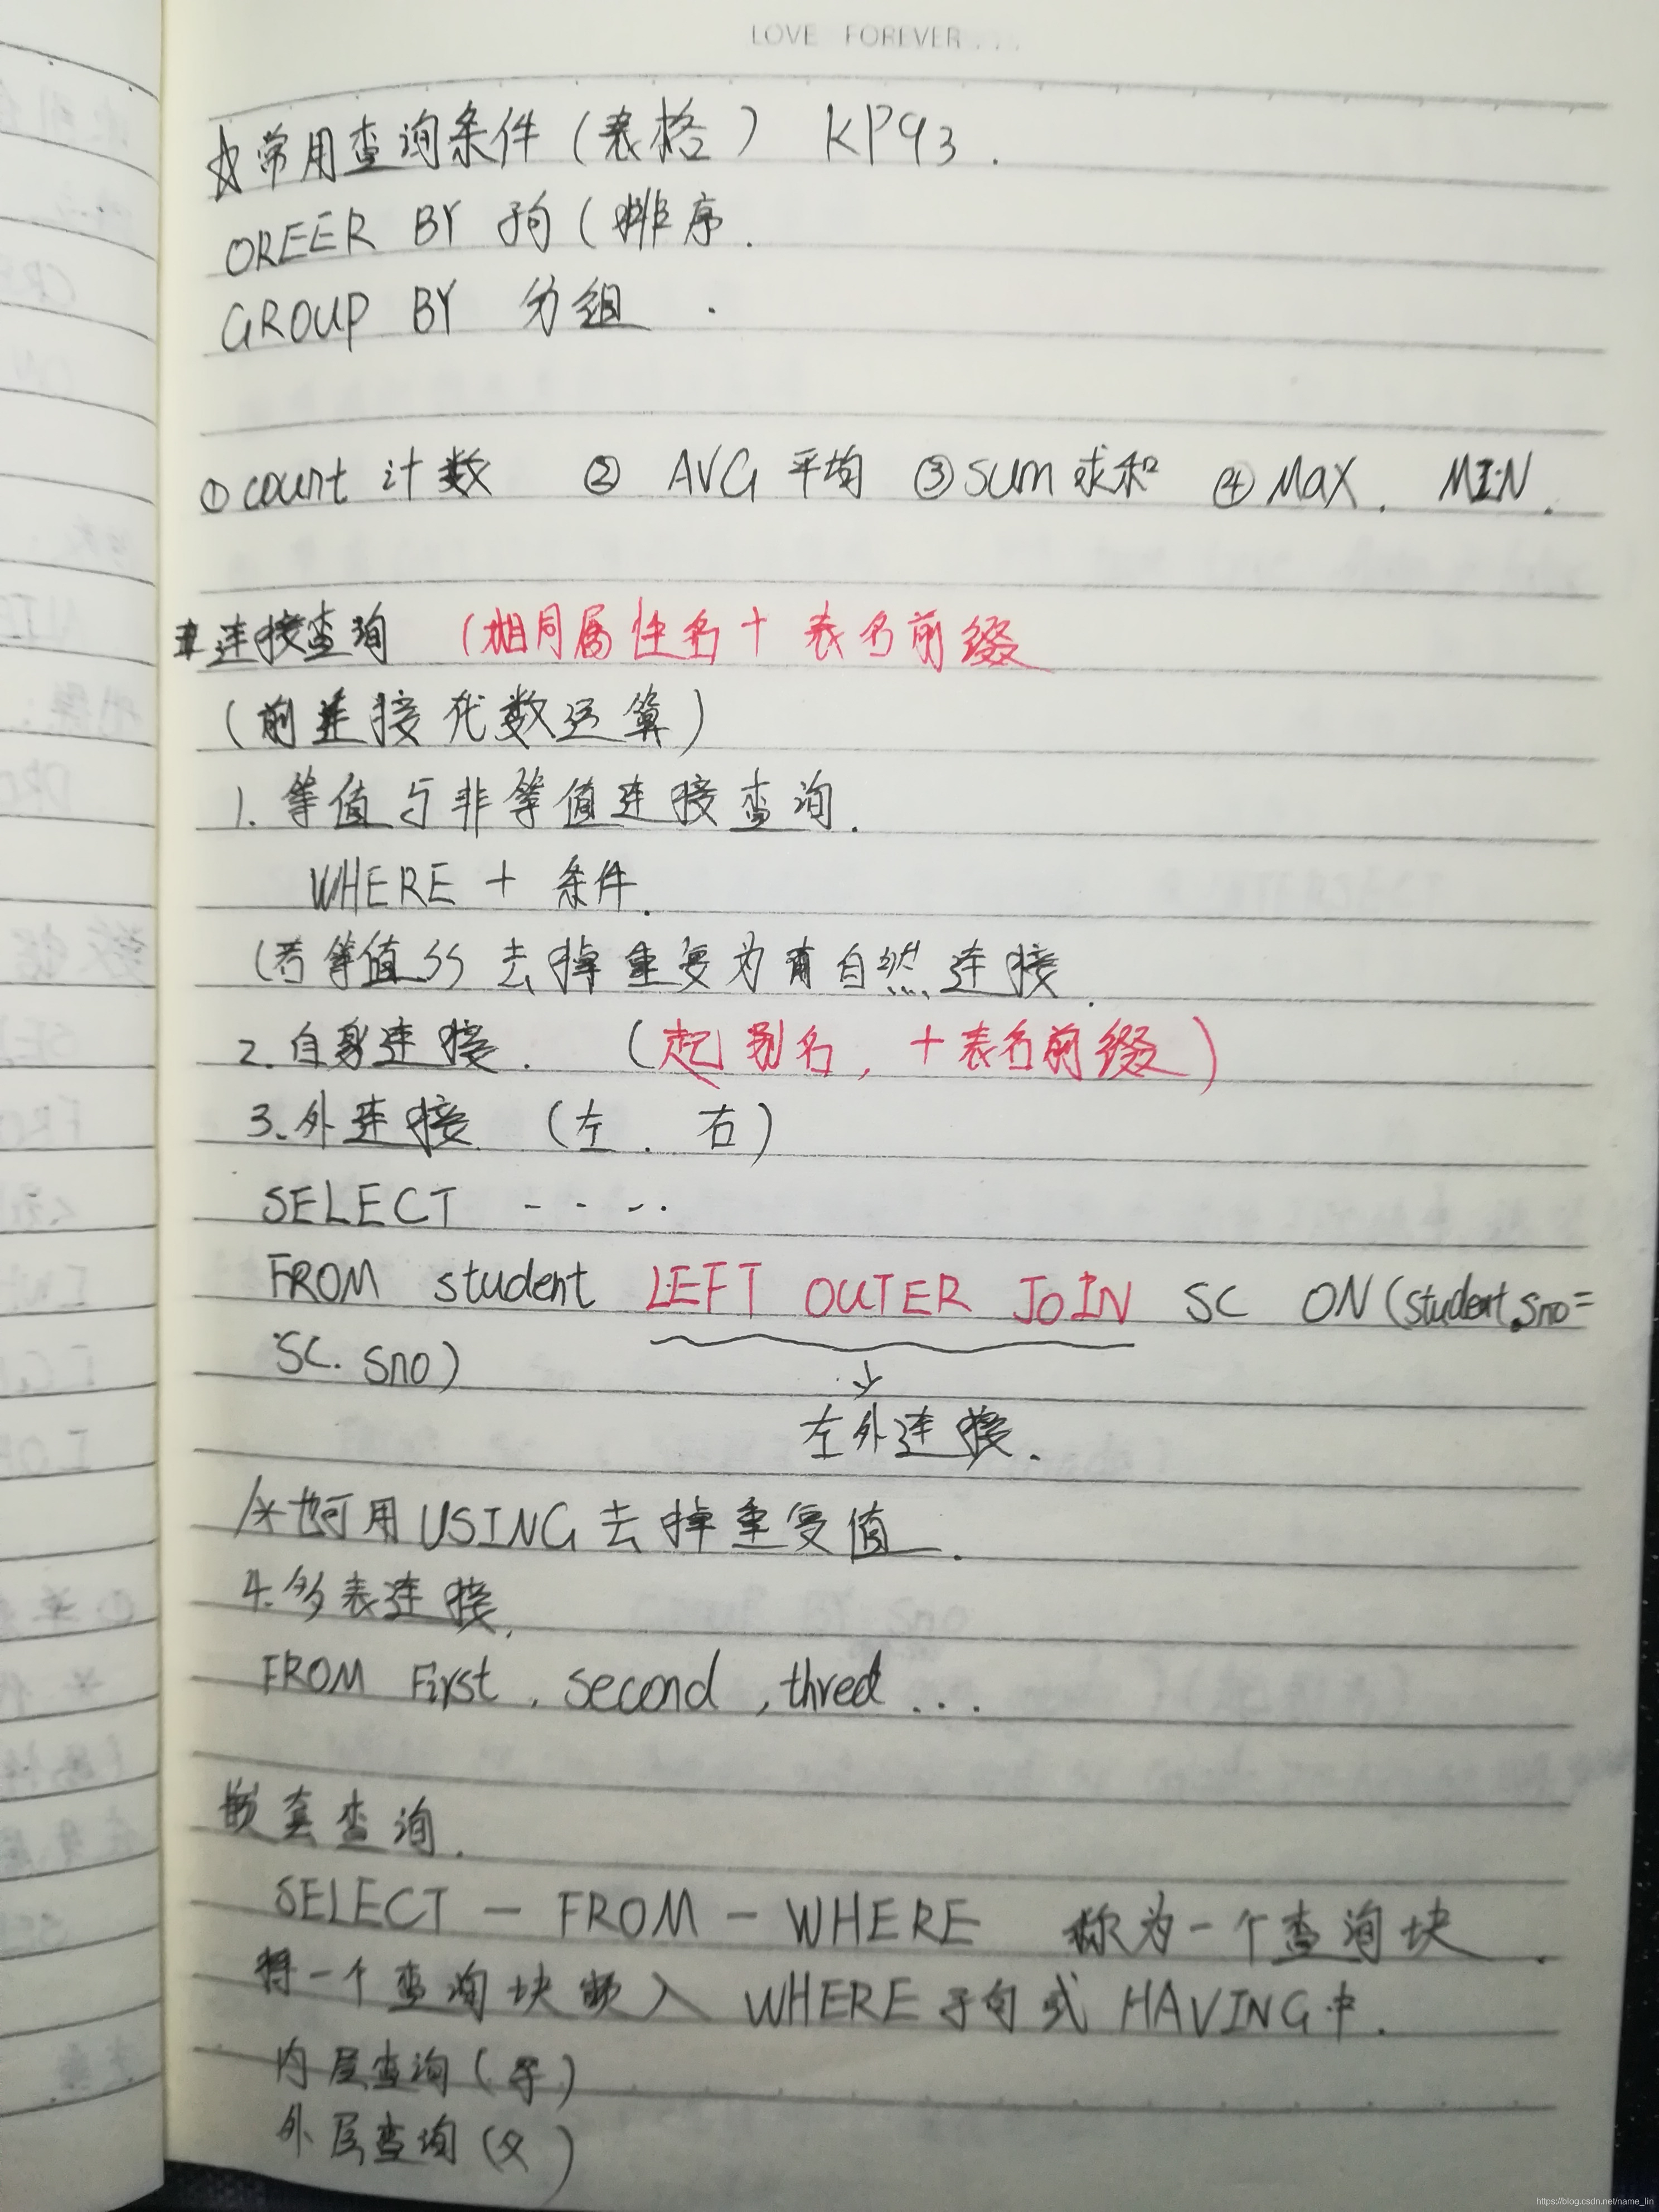 LOVE FOREVER...
☆常用查询条件(表格) KP93.
OREER BY 子句(排序.
GROUP BY 分组.
①count 计数 ② AVG 平均 ③SUM 求和 ④MAX. MIN.
连接查询 (相同属性名+表名前缀
(前连接代数运算)
1. 等值与非等值连接查询.
WHERE + 条件.
(若等值 去掉重复为有自然连接.
2. 自身连接. (起别名, +表名前缀)
3. 外连接 (左. 右)
SELECT - - - -.
FROM student LEFT OUTER JOIN SC ON(student.sno=
SC. Sno)
↓
左外连接.
/*也可用USING去掉重复值.
4. 多表连接.
FROM First, second, thred...
嵌套查询.
SELECT - FROM - WHERE 称为一个查询块.
将一个查询块嵌入 WHERE子句或 HAVING中.
内层查询(子)
外层查询(父)
https://blog.csdn.net/name_lin